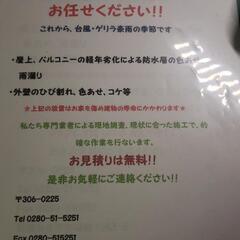 お任せください!!
これから、台風・ゲリラ豪雨の季節です
・屋上、バルコニーの経年劣化による防水層の色あ
雨漏り
・外壁のひび割れ、色あせ、コケ等
★上記の放置はお家を傷め建物の寿命にかかわります★
私たち専門業者による現地調査、現状に合った施工で、的
確な作業を行ないます。
お見積りは無料!!
是非お気軽にご連絡ください!!
〒306-0225
Tel 0280-51-5251
Fax 0280-515251